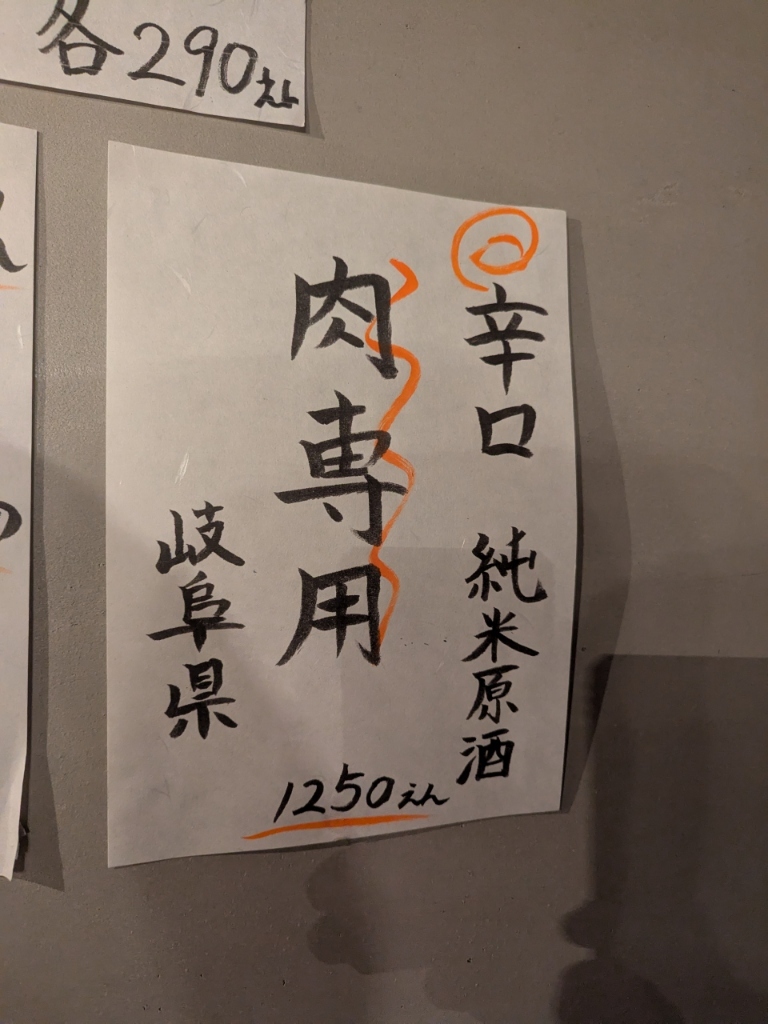 各290えん
辛口 純米原酒
肉専用
岐阜県
1250えん